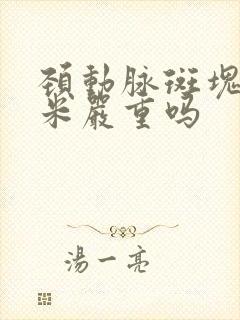 頚動脉斑塊
米嚴重吗
湯一亮